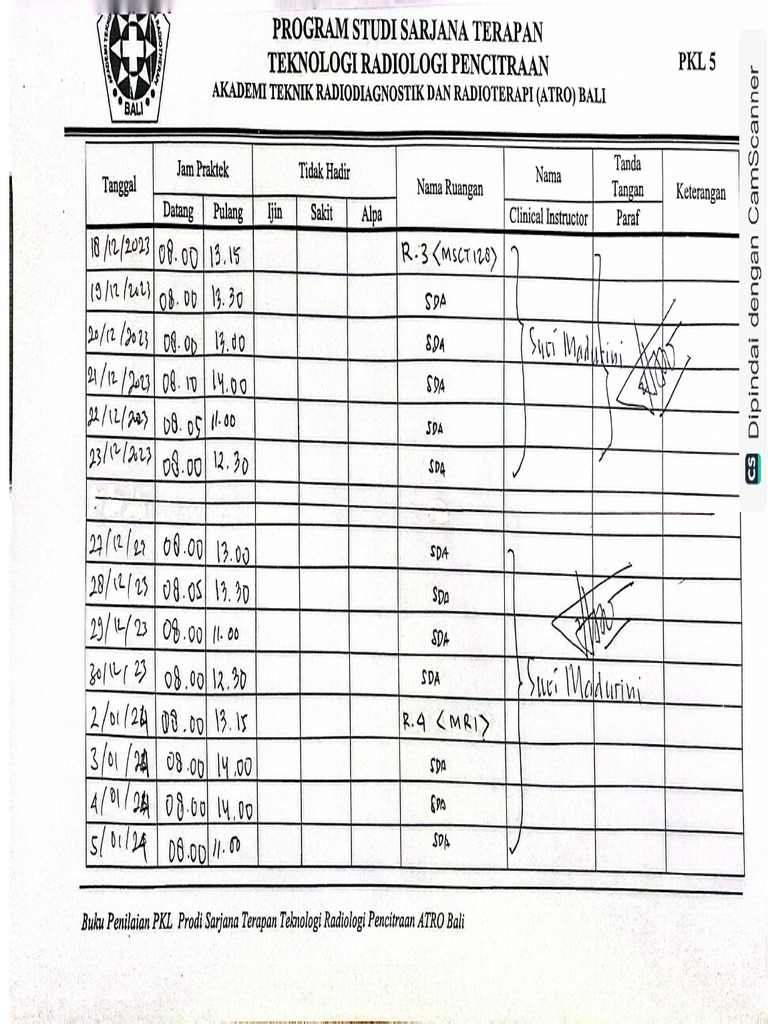 PROGRAM STUDI SARJANA TERAPAN
TEKNOLOGI RADIOLOGI PENCITRAAN
AKADEMI TEKNIK RADIODIAGNOSTIK DAN RADIOTERAPI (ATRO) BALI
PKL 5
BALI
Tanggal Jam Praktek Tidak Hadir Nama Ruangan Nama Tanda Tangan Keterangan
Datang Pulang Ijin Sakit Alpa Clinical Instructor Paraf
18/12/2023 08.00 13.15 R.3 <MSCT128>
19/12/2023 08.00 13.30 SDA
20/12/2023 08.00 13.00 SDA Suci Madurini
21/12/2023 08.10 14.00 SDA
22/12/2023 08.05 11.00 SDA
23/12/2023 08.00 12.30 SDA
27/12/23 08.00 13.00 SDA
28/12/23 08.05 13.30 SDA
29/12/23 08.00 11.00 SDA
30/12/23 08.00 12.30 SDA Suci Madurini
2/01/24 08.00 13.15 R.4 <MRI>
3/01/24 08.00 14.00 SDA
4/01/24 08.00 14.00 SDA
5/01/24 08.00 11.00 SDA
Buku Penilaian PKL Prodi Sarjana Terapan Teknologi Radiologi Pencitraan ATRO Bali
CS Dipindai dengan CamScanner